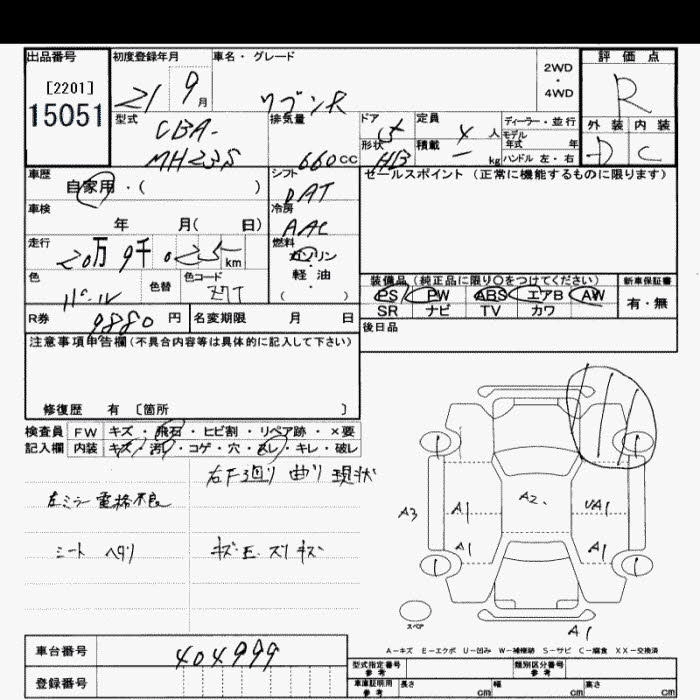 出品番号 初度登録年月 車名・グレード 評価点
[2201] 21 9月 ワゴンR 2WD・4WD R
15051
型式 排気量 ドア 定員 ディーラー・並行 外装 内装
CBA- 5 4人 モデル年式 年 D C
MH23S 660cc 形状 積載 kg ハンドル 左・右
HB
車歴 シフト セールスポイント(正常に機能するものに限ります)
自家用・( ) DAT
車検 冷房
年 月( 日) AAC
走行 燃料
20万9千025km ガソリン
軽・油
( )
色 色替 色コード 装備品(純正品に限り〇をつけてください) 新車保証書
パール Z7T PS PW ABS エアB AW 有・無
SR ナビ TV カワ
R券 9880円 名変期限 月 日 後日品
注意事項申告欄(不具合内容等は具体的に記入して下さい)
修復歴 有 〔箇所 〕
検査員 FW キズ・飛石・ヒビ割・リペア跡・×要
記入欄 内装 キズ・汚レ・コゲ・穴・スレ・キレ・破レ
右F廻り 曲り 現状
左ミラー 電格不良
シート ヘタリ キズ・E・スリキズ
A3 A1 A2 UA1
A1 A1
スペア A1
A-キズ E-エクボ U-凹み W-補修跡 S-サビ C-腐食 XX-交換済
車台番号 404999 型式指定番号 参考 類別区分番号 参考
登録番号 車庫証明用 参考 長さ cm 幅 cm 高さ cm